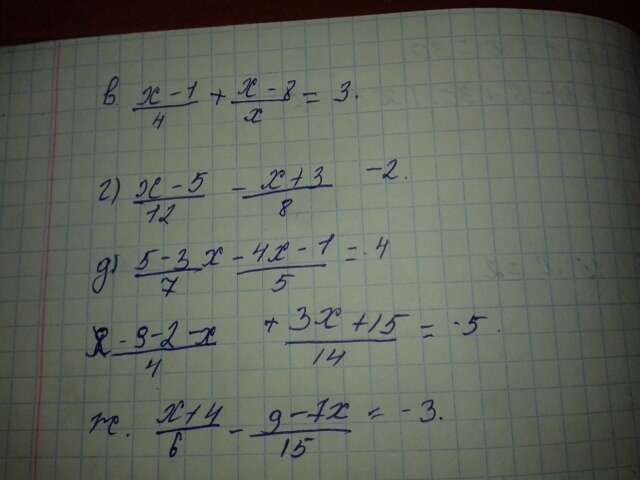 в. (x-1)/4 + (x-8)/x = 3.
г) (x-5)/12 - (x+3)/8 -2.
д) (5-3x)/7 - (4x-1)/5 = -4
(9-2-x)/4 + (3x+15)/14 = -5.
ж. (x+4)/6 - (9-7x)/15 = -3.